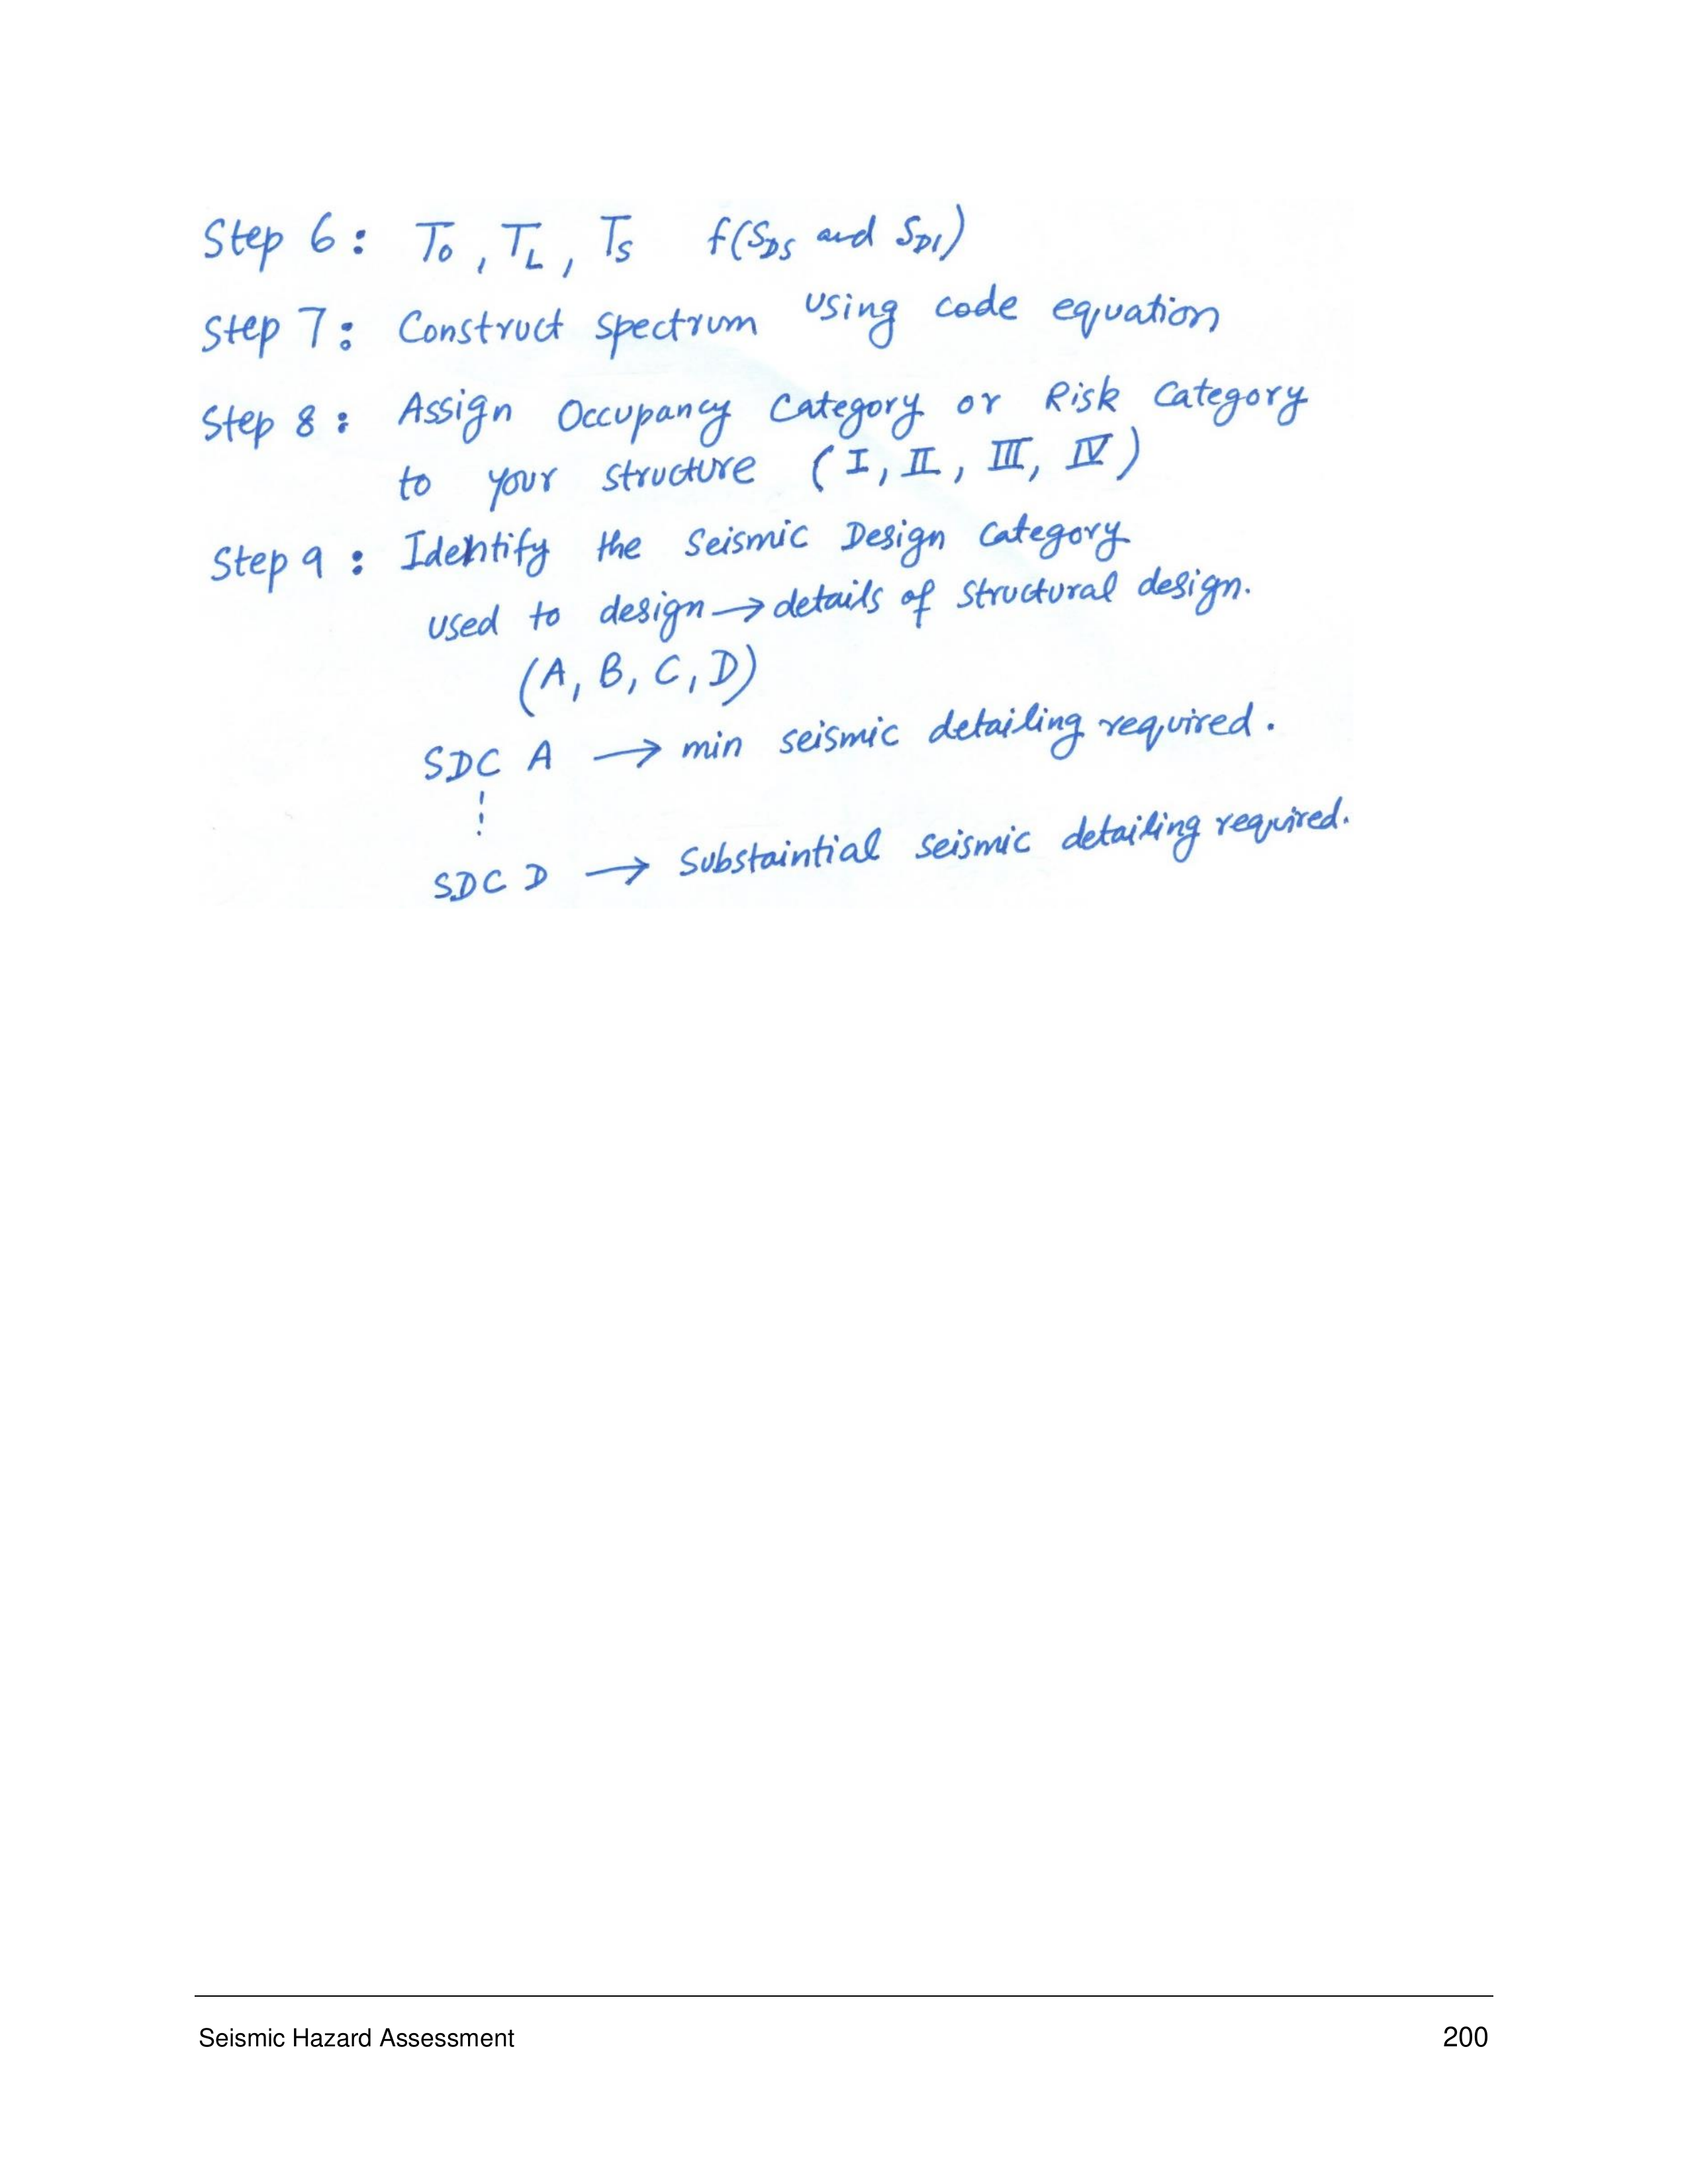 Step 6: T₀, T_L, T_S f(S_DS and S_D1)
Step 7: Construct spectrum using code equation
Step 8: Assign Occupancy Category or Risk Category
to your structure (I, II, III, IV)
Step 9: Identify the Seismic Design Category
used to design → details of structural design.
(A, B, C, D)
SDC A → min seismic detailing required.
⋮
SDC D → Substaintial seismic detailing required.
Seismic Hazard Assessment 200